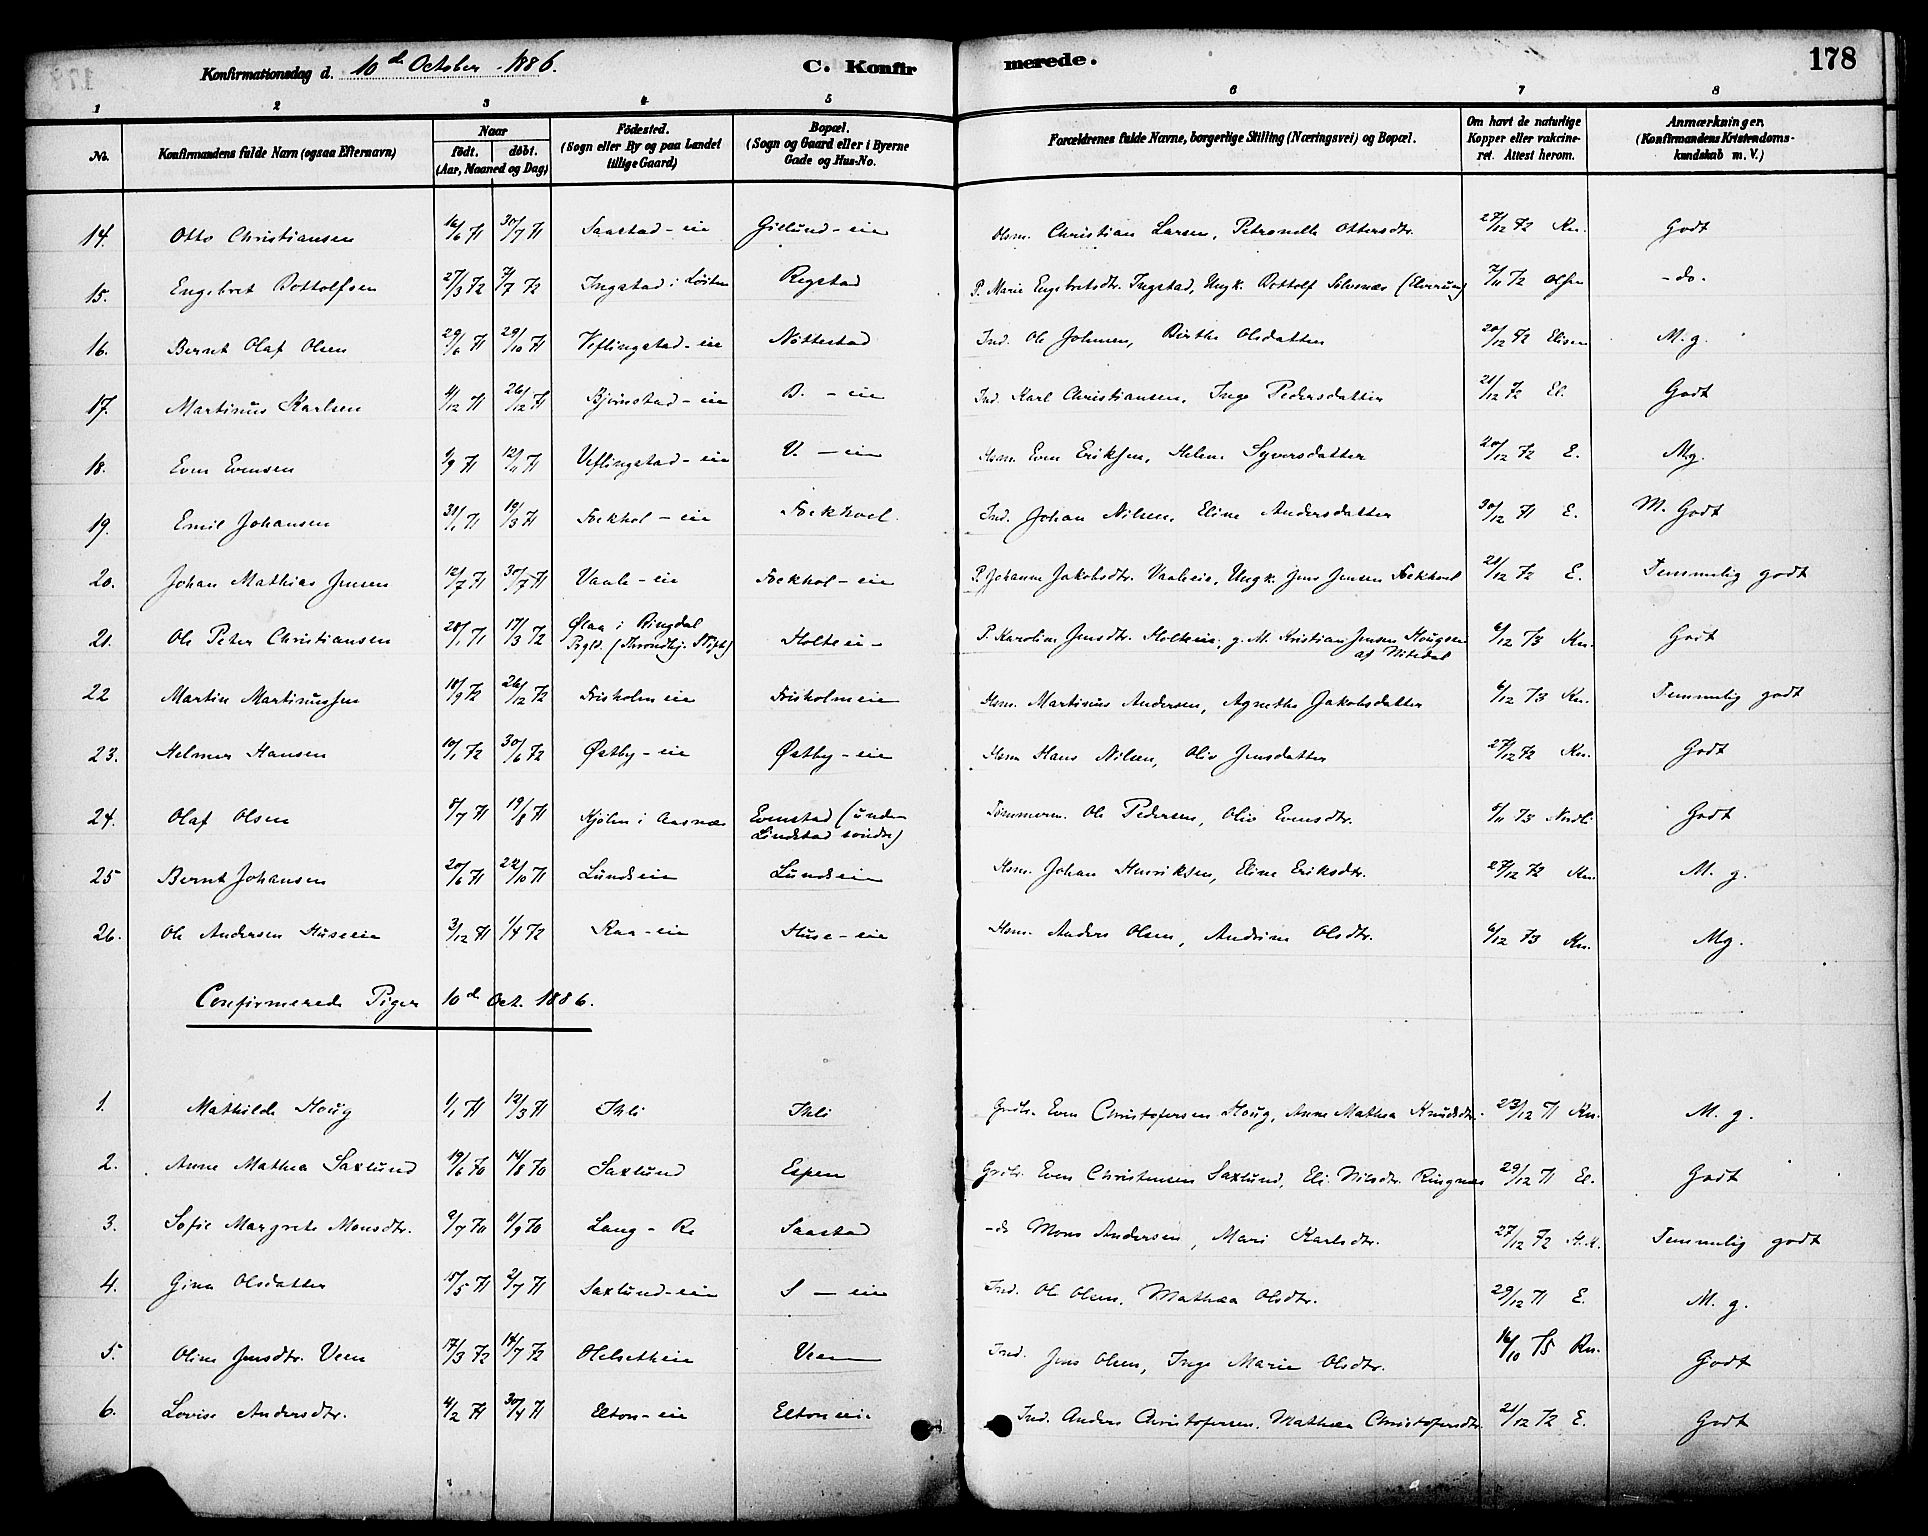 Konfirmationsdag d. 10de October 1886. C. Konfirmerede. 178
1 2 3 4 5 6 7 8
No. Konfirmandens fulde Navn (ogsaa Efternavn) Naar født. døbt. (Aar, Maaned og Dag) Fødested. (Sogn eller By og paa Landet tillige Gaard) Bopæl. (Sogn og Gaard eller i Byerne Gade og Hus-No. Forældrenes fulde Navne, borgerlige Stilling (Næringsvei) og Bopæl. Om havt de naturlige Kopper eller vakcineret. Attest herom. Anmærkninger. (Konfirmandens Kristendomskundskab m. V.)
14. Otto Christiansen 16/6 71 30/7 71 Saastad-eie Gielund-eie Hsm. Christian Larsen, Petronelle Ottersdtr. 27/12 72 Kn. Godt
15. Engebret Rottolfsen 27/3 72 7/7 72 Ingstad i Løiten Regstad P. Marie Engebretsdtr. Ingstad, Ungk. Rottolf (Elverum) 7/11 72 Olsen -do-
16. Bernt Olaf Olsen 29/6 71 29/10 71 Viflingstad-eie Nøttestad Ind. Ole Johnsen, Birthe Olsdatter 20/12 72 Elisen M. g.
17. Martinus Karlsen 4/12 71 26/12 71 Bjørnstad-eie B. - eie Ind. Karl Christiansen, Inge Pedersdatter 21/12 72 El. Godt
18. Even Evensen 9/9 71 12/11 71 Viflingstad-eie V. - eie Hsm. Even Eriksen, Helene Syversdatter 20/12 72 E. Mg.
19. Emil Johansen 31/1 71 19/3 71 Fokhol-eie Fokhoel. Ind. Johan Nilsen, Eline Andersdatter 30/12 71 E. M. Godt
20. Johan Mathias Jensen 12/7 71 30/7 71 Vaale-eie Fokhol-eie P. Johanne Jakobsdtr. Vaaleeie, Ungk. Jens Jensen Fokhoel 21/12 72 E. Temmelig godt
21. Ole Peter Christiansen 28/1 71 17/3 72 Ølaa i Ringdal Prgld. (Throndhj. Stift) Holteie- P. Karoline Jensdtr. Holteeie, g. M. Kristian Jensen Hougsen af Nitedal 6/12 73 Kn. Godt
22 Martin Martinussen 18/9 72 26/12 72 Frisholmeie Frisholmeie Hsm. Martinus Andersen, Agnethe Jakobsdatter 6/12 73 Kn. Temmelig godt
23. Helmer Hansen 10/1 72 30/6 72 Østby-eie Østby-eie Hsm Hans Nilsen, Oliv Jensdatter 27/12 72 Kn. Godt
24. Olaf Olsen 8/7 71 19/8 71 Kjølen i Aasnæs Evenstad (under Lindstad søndre) Tømmerm. Ole Pedersen, Oliv Evensdtr. 8/11 73 Nordli Godt
25 Bernt Johansen 20/6 71 22/10 71 Lundseie Lundseie Hsm. Johan Henriksen, Eline Eriksdtr. 27/12 72 Kn. M. g.
26. Ole Andersen Huseeie 3/12 71 1/4 72 Raa-eie Huse-eie Hsm. Anders Olsen, Andrine Olsdtr. 6/12 73 Kn. Mg.
Confirmerede Piger 10de Oct. 1886.
1. Mathilde Houg 1/1 71 12/3 71 Ihli Ihli Grdbr. Even Christofersen Houg, Anne Mathea Knudsdtr. 23/12 71 Kn. M. g.
2. Anne Mathea Saxlund 19/6 70 14/8 70 Saxlund Espen Grdbr. Even Christensen Saxlund, Eli Nilsdtr. Ringnæs 29/12 71 El. Godt
3. Sofie Margrete Monsdtr. 9/7 70 11/9 70 Lang-Re Saastad -do Mons Andersen, Mari Karlsdtr. 27/12 72 H.K. Temmelig godt
4. Gina Olsdatter 15/5 71 2/7 71 Saxlund-eie S - eie Ind. Ole Olsen, Mathea Olsdtr. 29/12 71 E. M. g.
5. Oline Jensdtr. Veen 17/3 72 14/7 72 Helsetheie Veen Ind. Jens Olsen, Inge Marie Olsdtr. 16/10 75 Kn. Godt
6. Lovise Andersdtr. 4/2 71 30/4 71 Elton-eie Eltoneie Ind. Anders Christofersen, Mathea Christofersdtr. 21/12 72 E. Godt